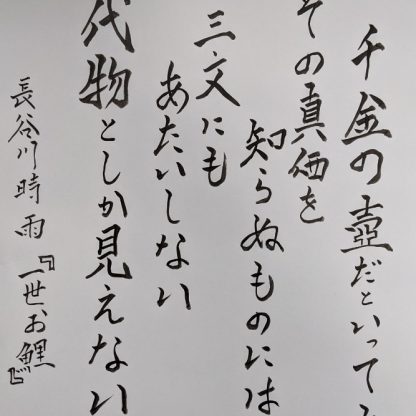 千金の壺だといって
その真価を
知らぬものには
三文にも
あたいしない
代物としか見えない
長谷川時雨『一世お鯉』